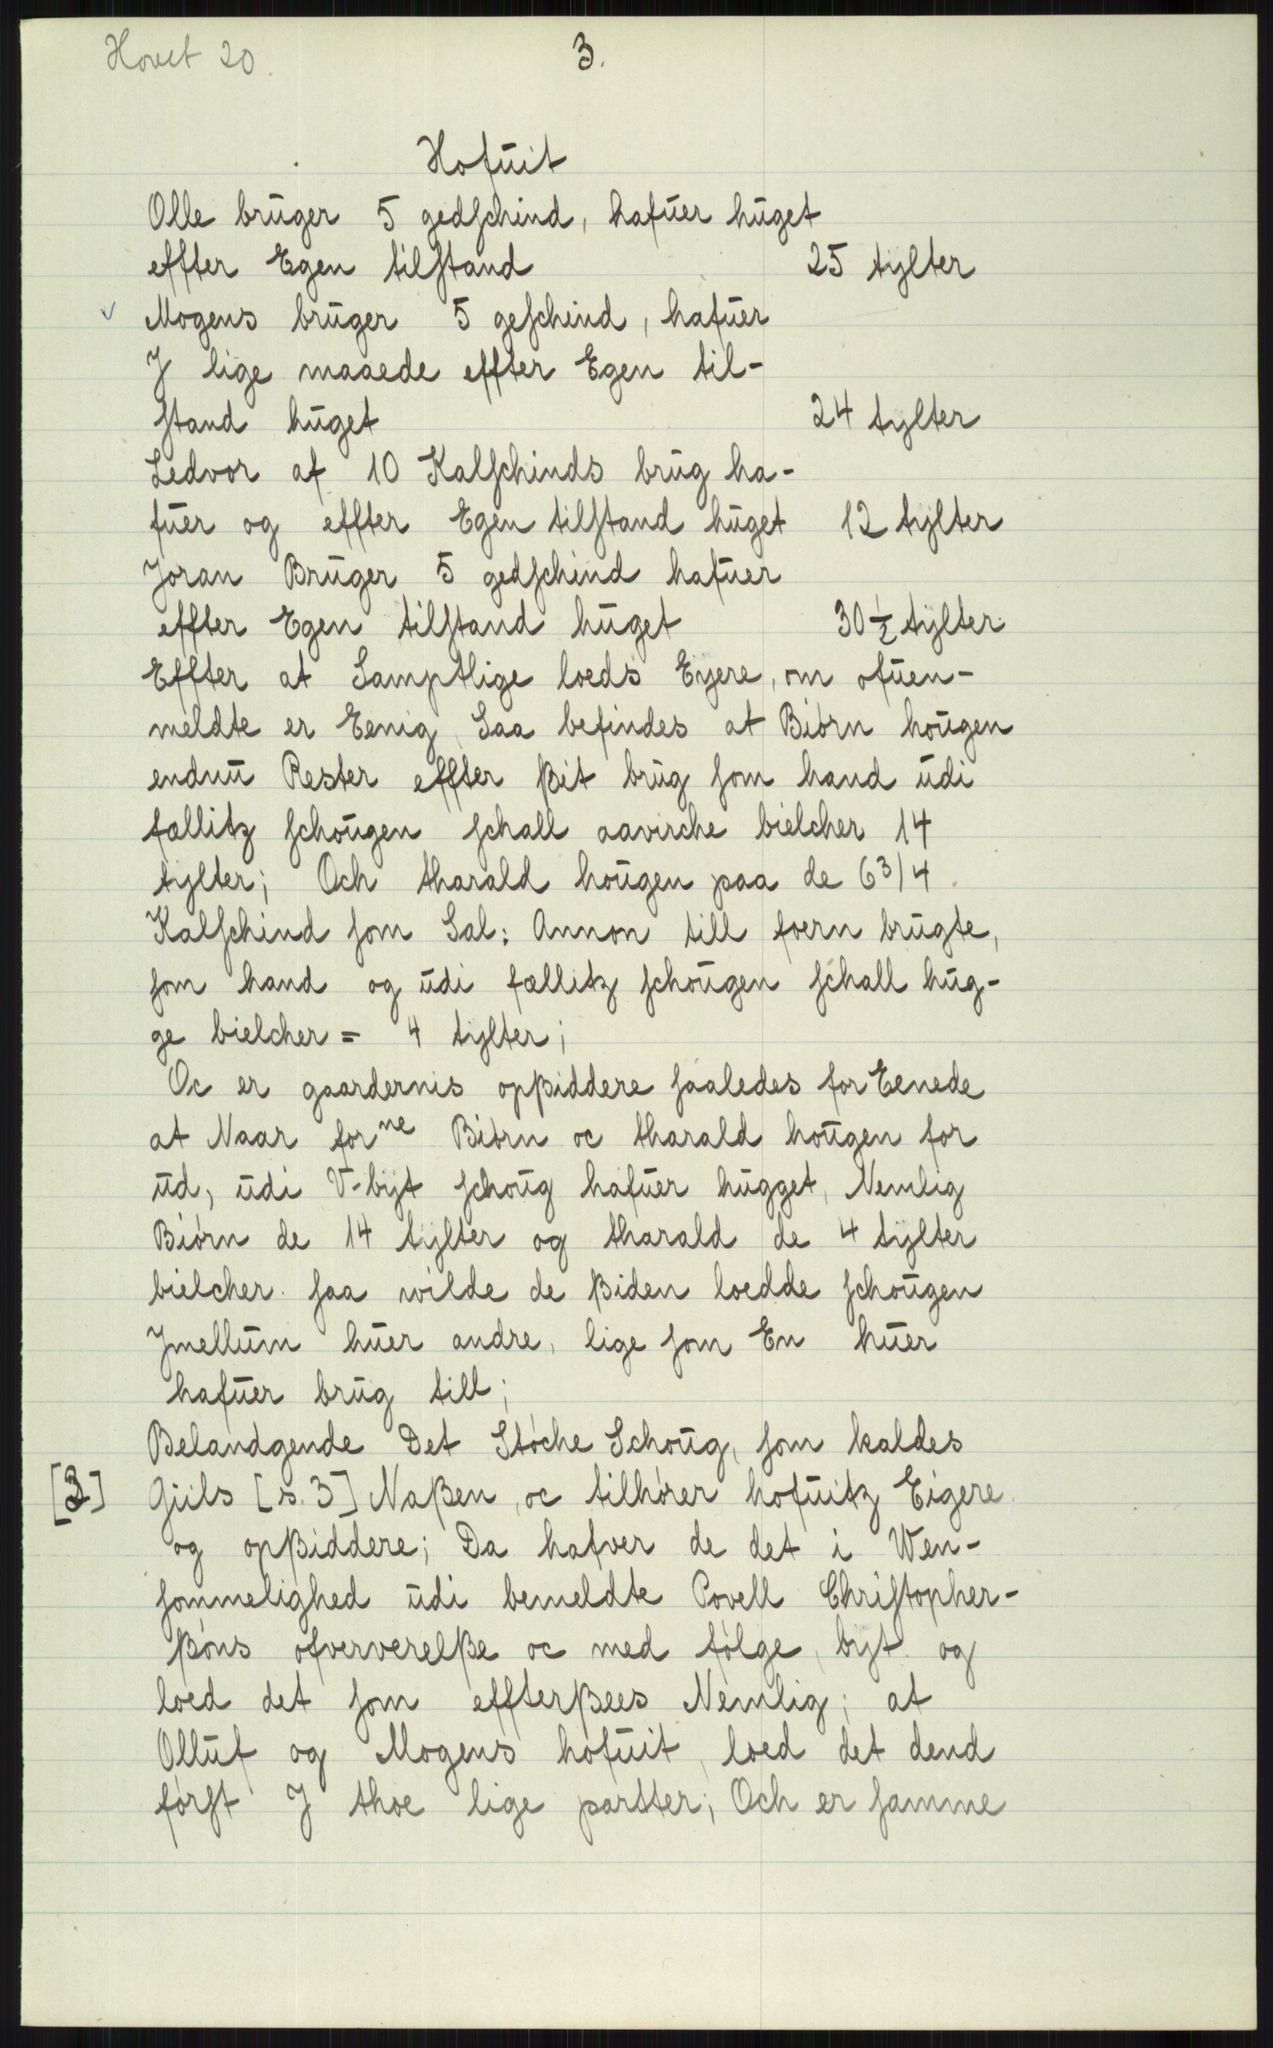 Hovet 20.
3.
Hofuit
Olle bruger 5 gedschind, hafuer huget
effter Egen tilstand 25 tylter
✓ Mogens bruger 5 geschind, hafuer
J lige maaede effter Egen til-
stand huget 24 tylter
Ledvor af 10 Kalschinds brug ha-
fuer og effter Egen tilstand huget 12 tylter
Joran Bruger 5 gedschind hafuer
effter Egen tilstand huget 30 ½ tylter
Effter at Samptlige loeds Eyere, om ofuen-
meldte er Eenig, Saa befindes at Biørn hougen
endnu Rester effter ßit brug som hand udi
fællitz schougen schall aavirche bielcher 14
tylter; Och tharald hougen paa de 6 3/4
Kalschind som Sal: Annon till foern brugte,
som hand og udi fællitz schougen schall hug-
ge bielcher = 4 tylter;
Oc er gaardernis opßiddere saaledes for Eenede
at Naar forne Biørn oc tharald hougen for
ud, udi V-byt schoug hafuer hugget, Nemlig
Biørn de 14 tylter og tharald de 4 tylter
bielcher. saa wilde de ßiden loedde schougen
Jmellum huer andre, lige som En huer
hafuer brug till;
Belandgende Det Støche Schoug, som kaldes
[3] Giils [s. 3] Naßen, oc tilhører hofuitz Eigere
og opßiddere; Da hafver de det i Wen-
sommelighed udi bemeldte Povell Christopher-
ßøns ofververelße oc med følge, byt og
loed det som effterßees Nemlig; at
Olluf og Mogens hofuit, loed det dend
først J thoe lige partter; Och er samme